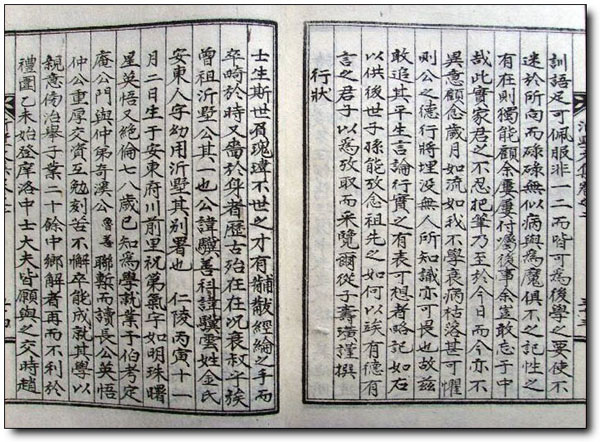 訓語足可佩服非一二而皆可爲後學之要使不
迷於所向而碌碌無似病與爲魔俱不之記性之
有在則獨能顧余屢屢付囑後事余豈敢忘于中
哉此實家君之不忍把筆乃至於今日而今亦不
意顧念歲月如流如我不學衰病枯落甚可懼
則公之德行將埋没無人所知識亦可畏也故玆
敢追其平生言論行實之有表可想者略記如右
以供後世子孫能攷念祖先之如何以族有德有
言之君子以爲攷取而采覽爾從子壽璜謹撰
行狀
士生斯世有瑰瑋不世之才有黼黻經綸之手而
卒畸於時又嗇於身者歷古殆往往况衰叔于族
曾祖沂墅公其一也公諱驥善科諱驥雲姓金氏
安東人字幼用沂墅其別署也 仁陵丙寅十一
月二日生于安東府川前里祝第氣宇如明珠曙
星英悟又絶倫七八歲已知爲學就業于伯考定
庵公門與仲弟奇溪公善聯槧而讀長公英悟
仲公重厚交資互勉刻苦不懈卒能成就其學以
親意傍治擧子業二十餘中鄕解者再而不利於
禮圍乙未始登庠洛中士大夫皆願與之交時趙